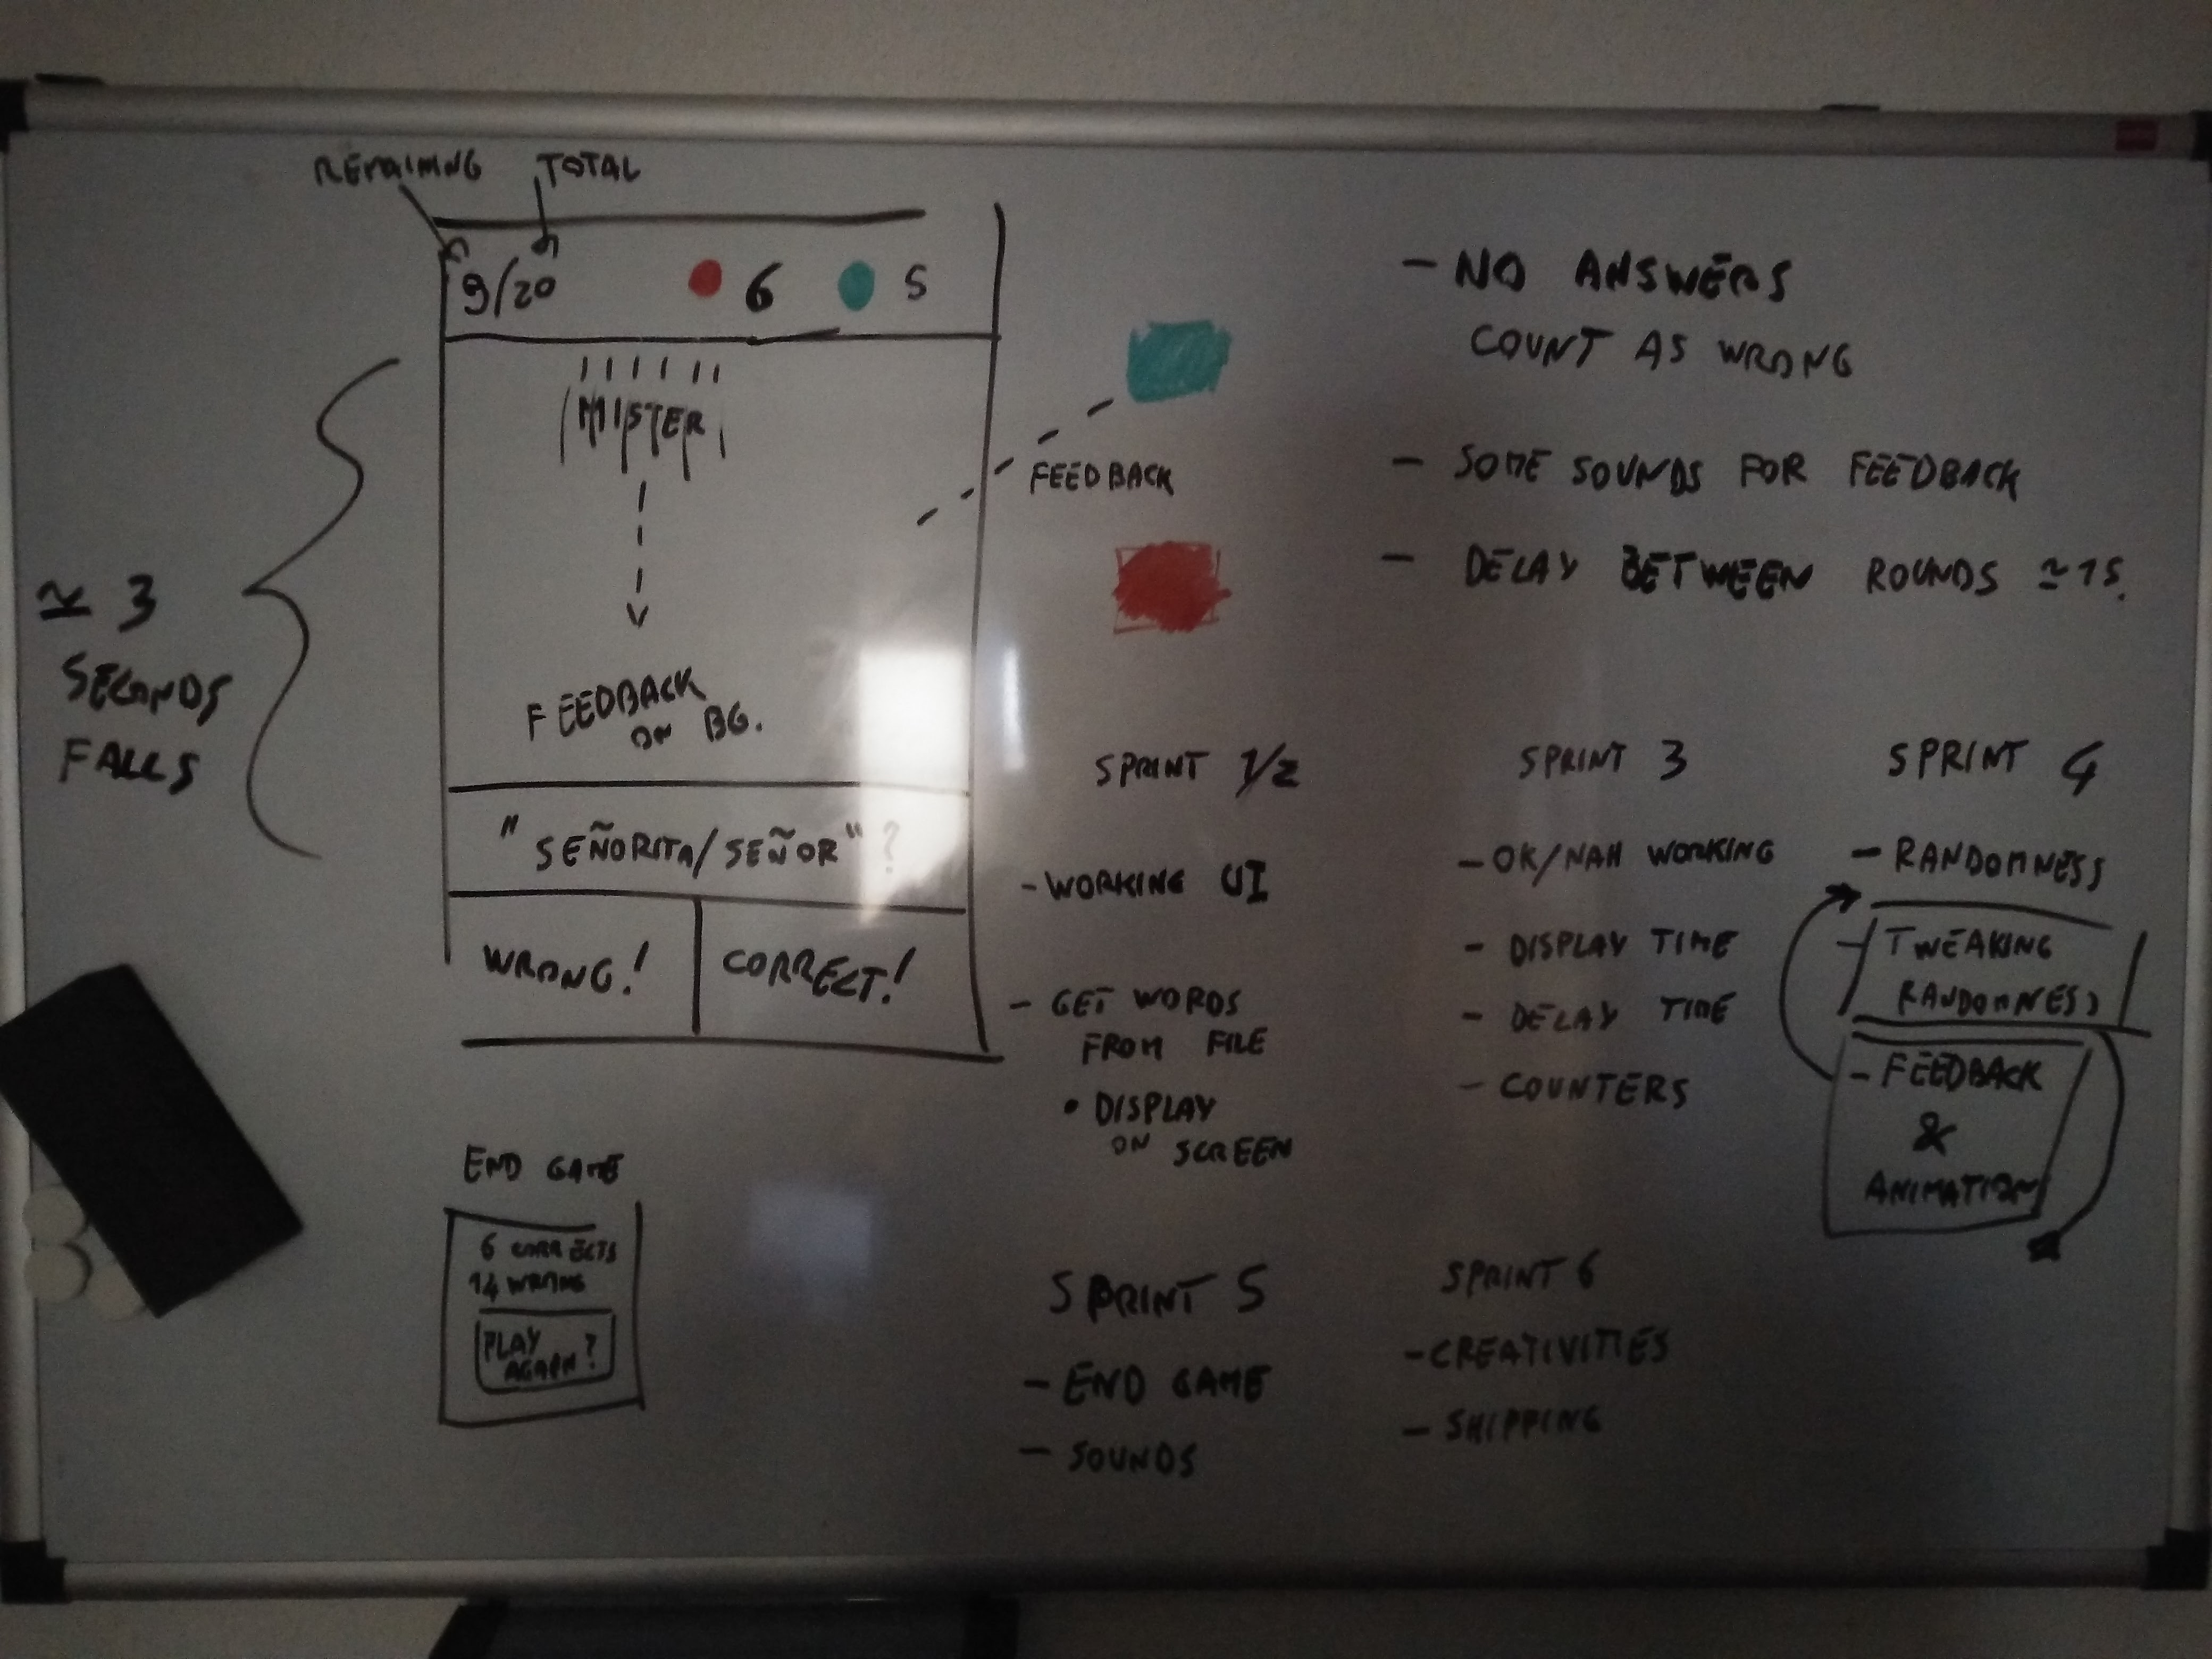 REMAINING TOTAL
9/20 6 5
MISTER
FEEDBACK
≃ 3
SECONDS
FALLS
FEEDBACK
ON BG.
"SEÑORITA/SEÑOR"?
WRONG! CORRECT!
END GAME
6 CORRECTS
14 WRONG
PLAY
AGAIN?
- NO ANSWERS
COUNT AS WRONG
- SOME SOUNDS FOR FEEDBACK
- DELAY BETWEEN ROUNDS ≃1S.
SPRINT 1/2
- WORKING UI
- GET WORDS
FROM FILE
• DISPLAY
ON SCREEN
SPRINT 3
- OK/NAH WORKING
- DISPLAY TIME
- DELAY TIME
- COUNTERS
SPRINT 4
- RANDOMNESS
- TWEAKING
RANDOMNESS
- FEEDBACK
&
ANIMATION
SPRINT 5
- END GAME
- SOUNDS
SPRINT 6
- CREATIVITIES
- SHIPPING